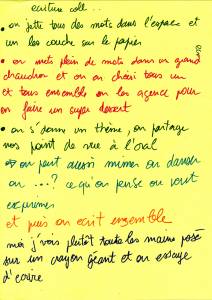 ecriture coll...
• on jette tous des mots dans l'espace et
un les couche sur le papier
• on mets plein de mots dans un grand
chaudron et on en choisi tous un
et tous ensemble on les agence pour
en faire un super dessert
• on s'donne un thème, on partage
nos point de vue à l'oral
on peut aussi mimer on danser
ou ...? ce qu'on pense ou veut
exprimer
et puis on ecrit ensemble
moi j'vois plutôt toutes les mains posé
sur un crayon géant et on essaye
d'ecrire